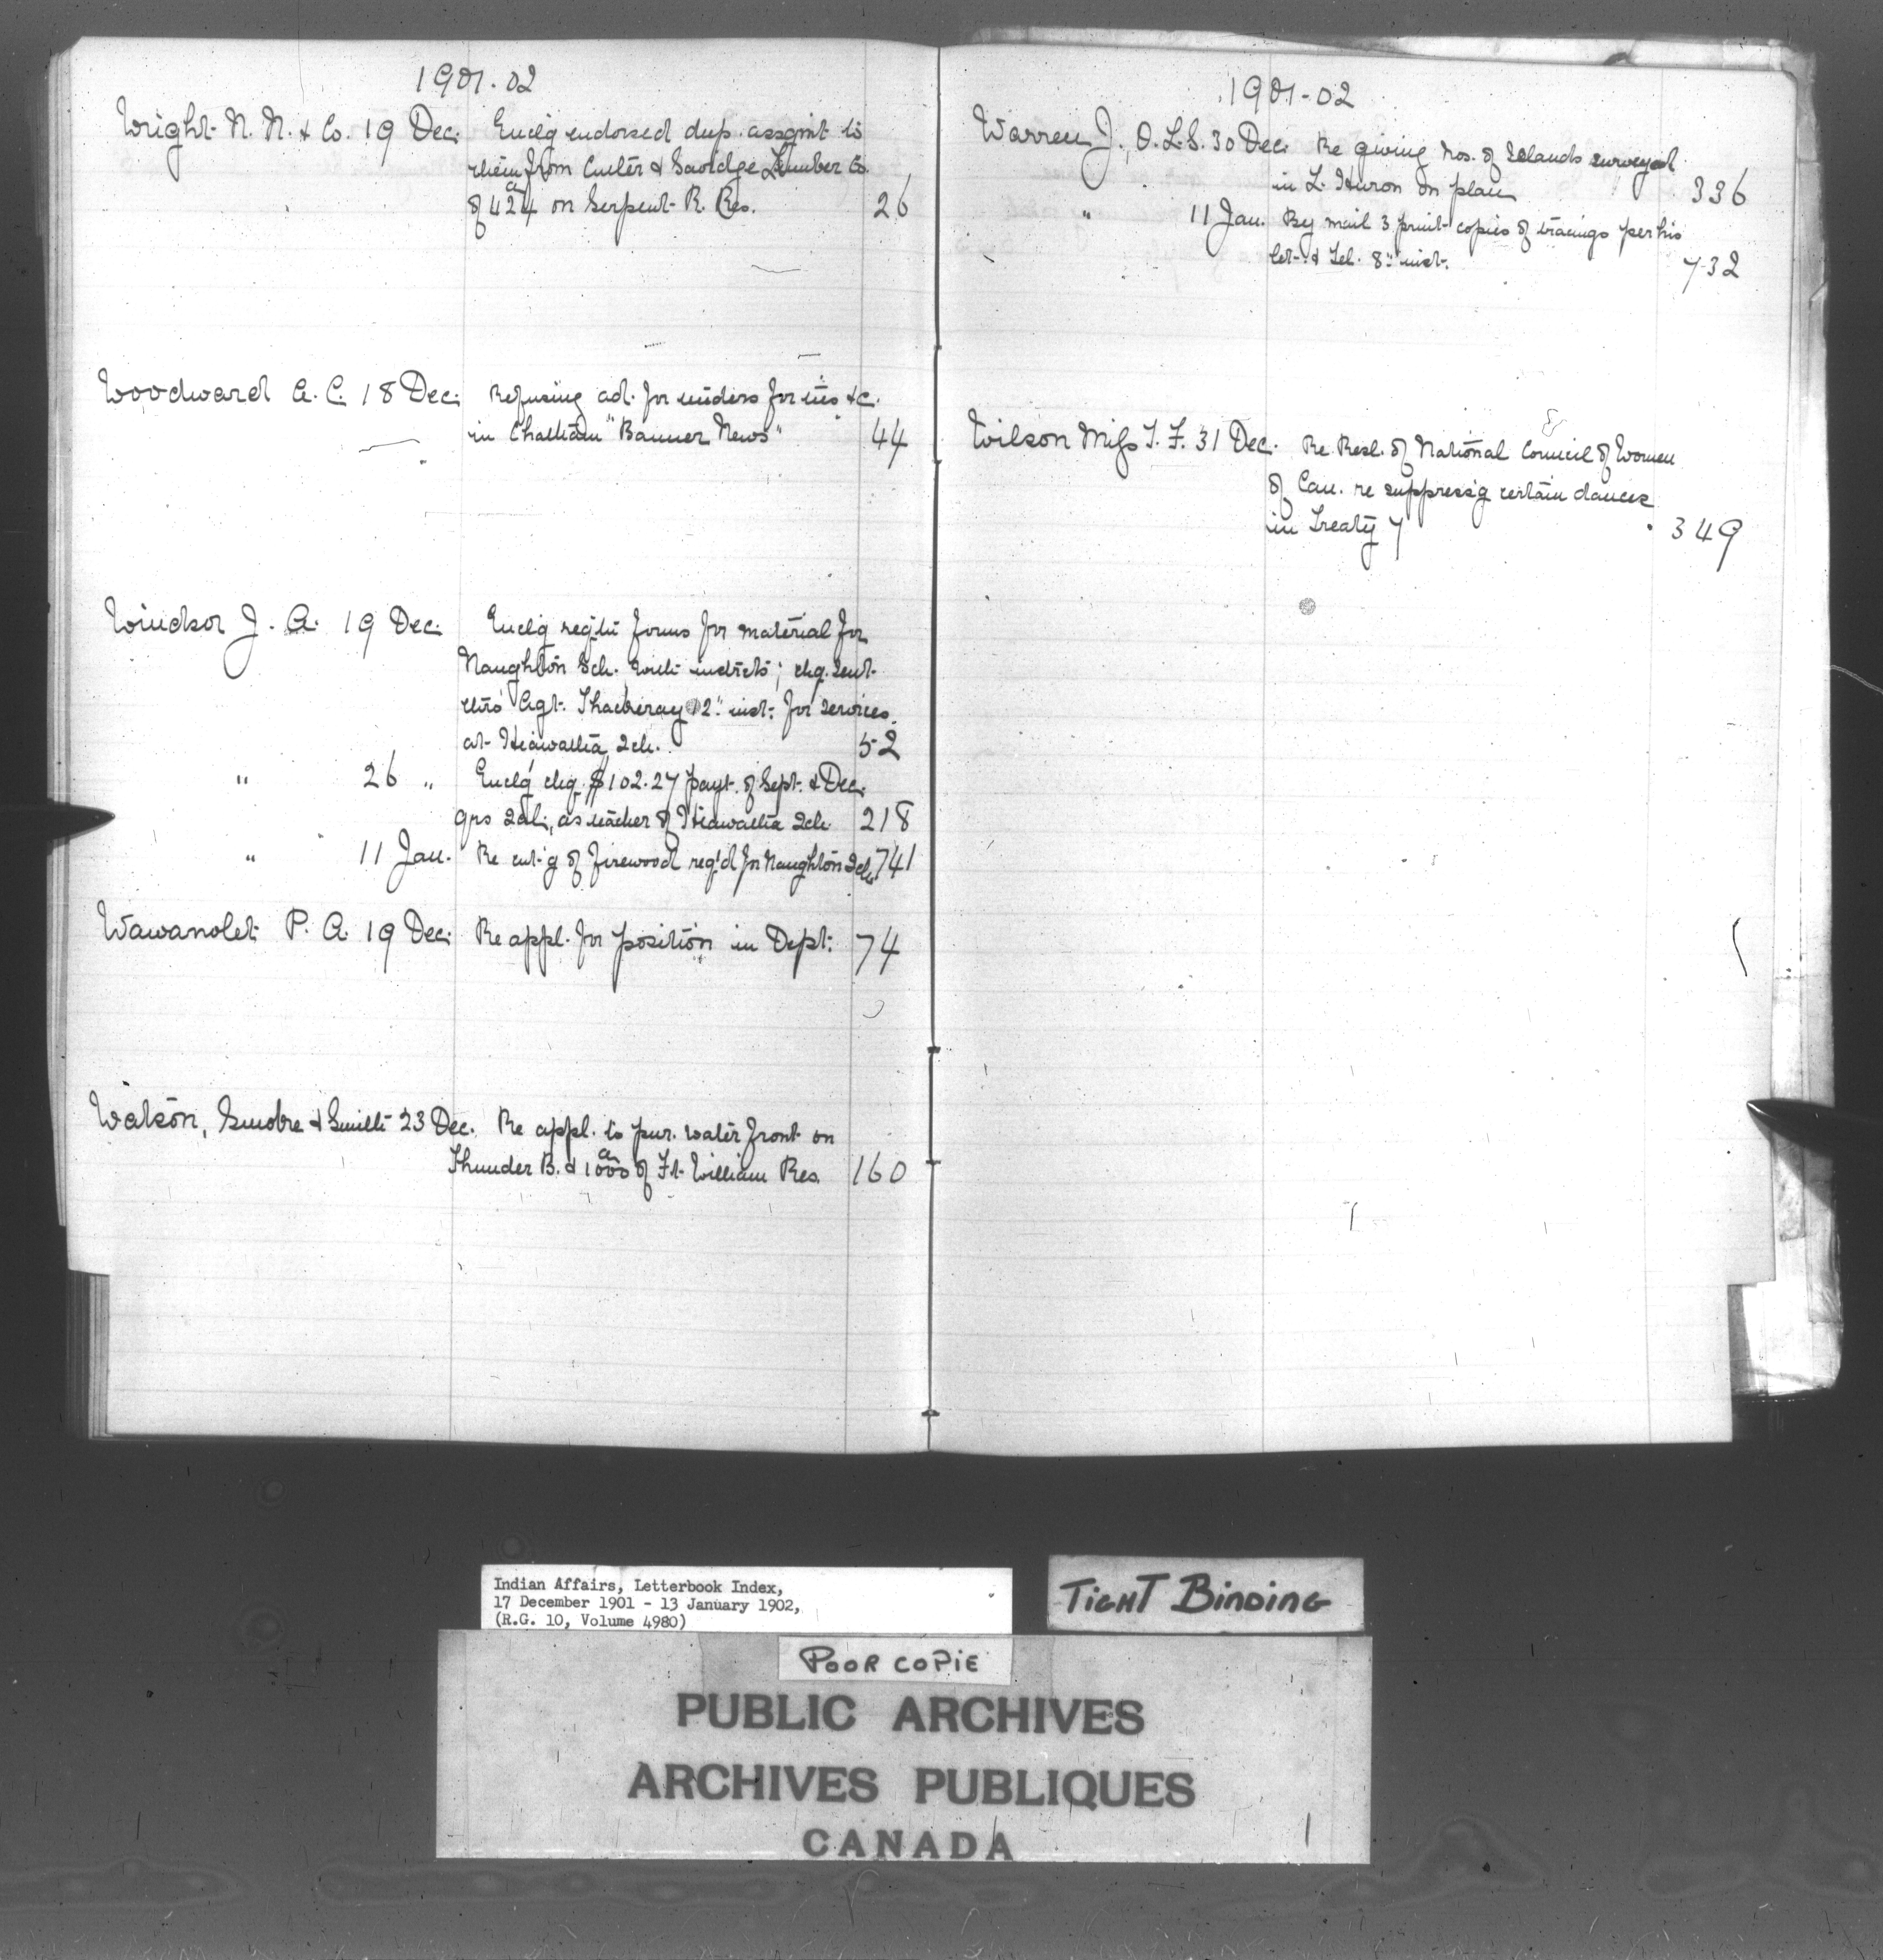 1901-02
Wright N. N. & Co. 19 Dec. Enclg endorsed dup. assgmt to
them from Cutler & Savidge Lumber Co.
of 424a on Serpent R. Res. 26
Woodward A. C. 18 Dec. Refusing ad. for tenders for ins &c.
in Chatham "Banner News" 44
Windsor J. A. 19 Dec. Enclg reqtn forms for material for
Naughton Sch. with instrcts; chq. sent
thro' Agt. Thackeray 12" inst. for services
at Hiawatha Sch. 52
" 26 " Enclg chq. $102.27 payt. of Sept. & Dec.
qrs sal., as teacher of Hiawatha Sch. 218
" 11 Jan. Re cut'g of firewood req'd for Naughton Sch. 741
Wawanolet P. A. 19 Dec. Re appl. for position in Dept. 74
Watson, Smoke & Smith 23 Dec. Re appl. to pur. water front on
Thunder B. & 1000a of Ft. William Res. 160
1901-02
Warren J., O.L.S. 30 Dec. Re giving Nos. of Islands surveyed
in L. Huron on plan 336
" 11 Jan. By mail 3 print copies of tracings per his
let. & tel. 8" inst. 732
Wilson Miss T. F. 31 Dec. Re Resl. of National Council of Women
of Can. re suppress'g certain dances
in Treaty 7 349
Indian Affairs, Letterbook Index,
17 December 1901 - 13 January 1902,
(R.G. 10, Volume 4980)
TIGHT BINDING
POOR COPIE
PUBLIC ARCHIVES
ARCHIVES PUBLIQUES
CANADA